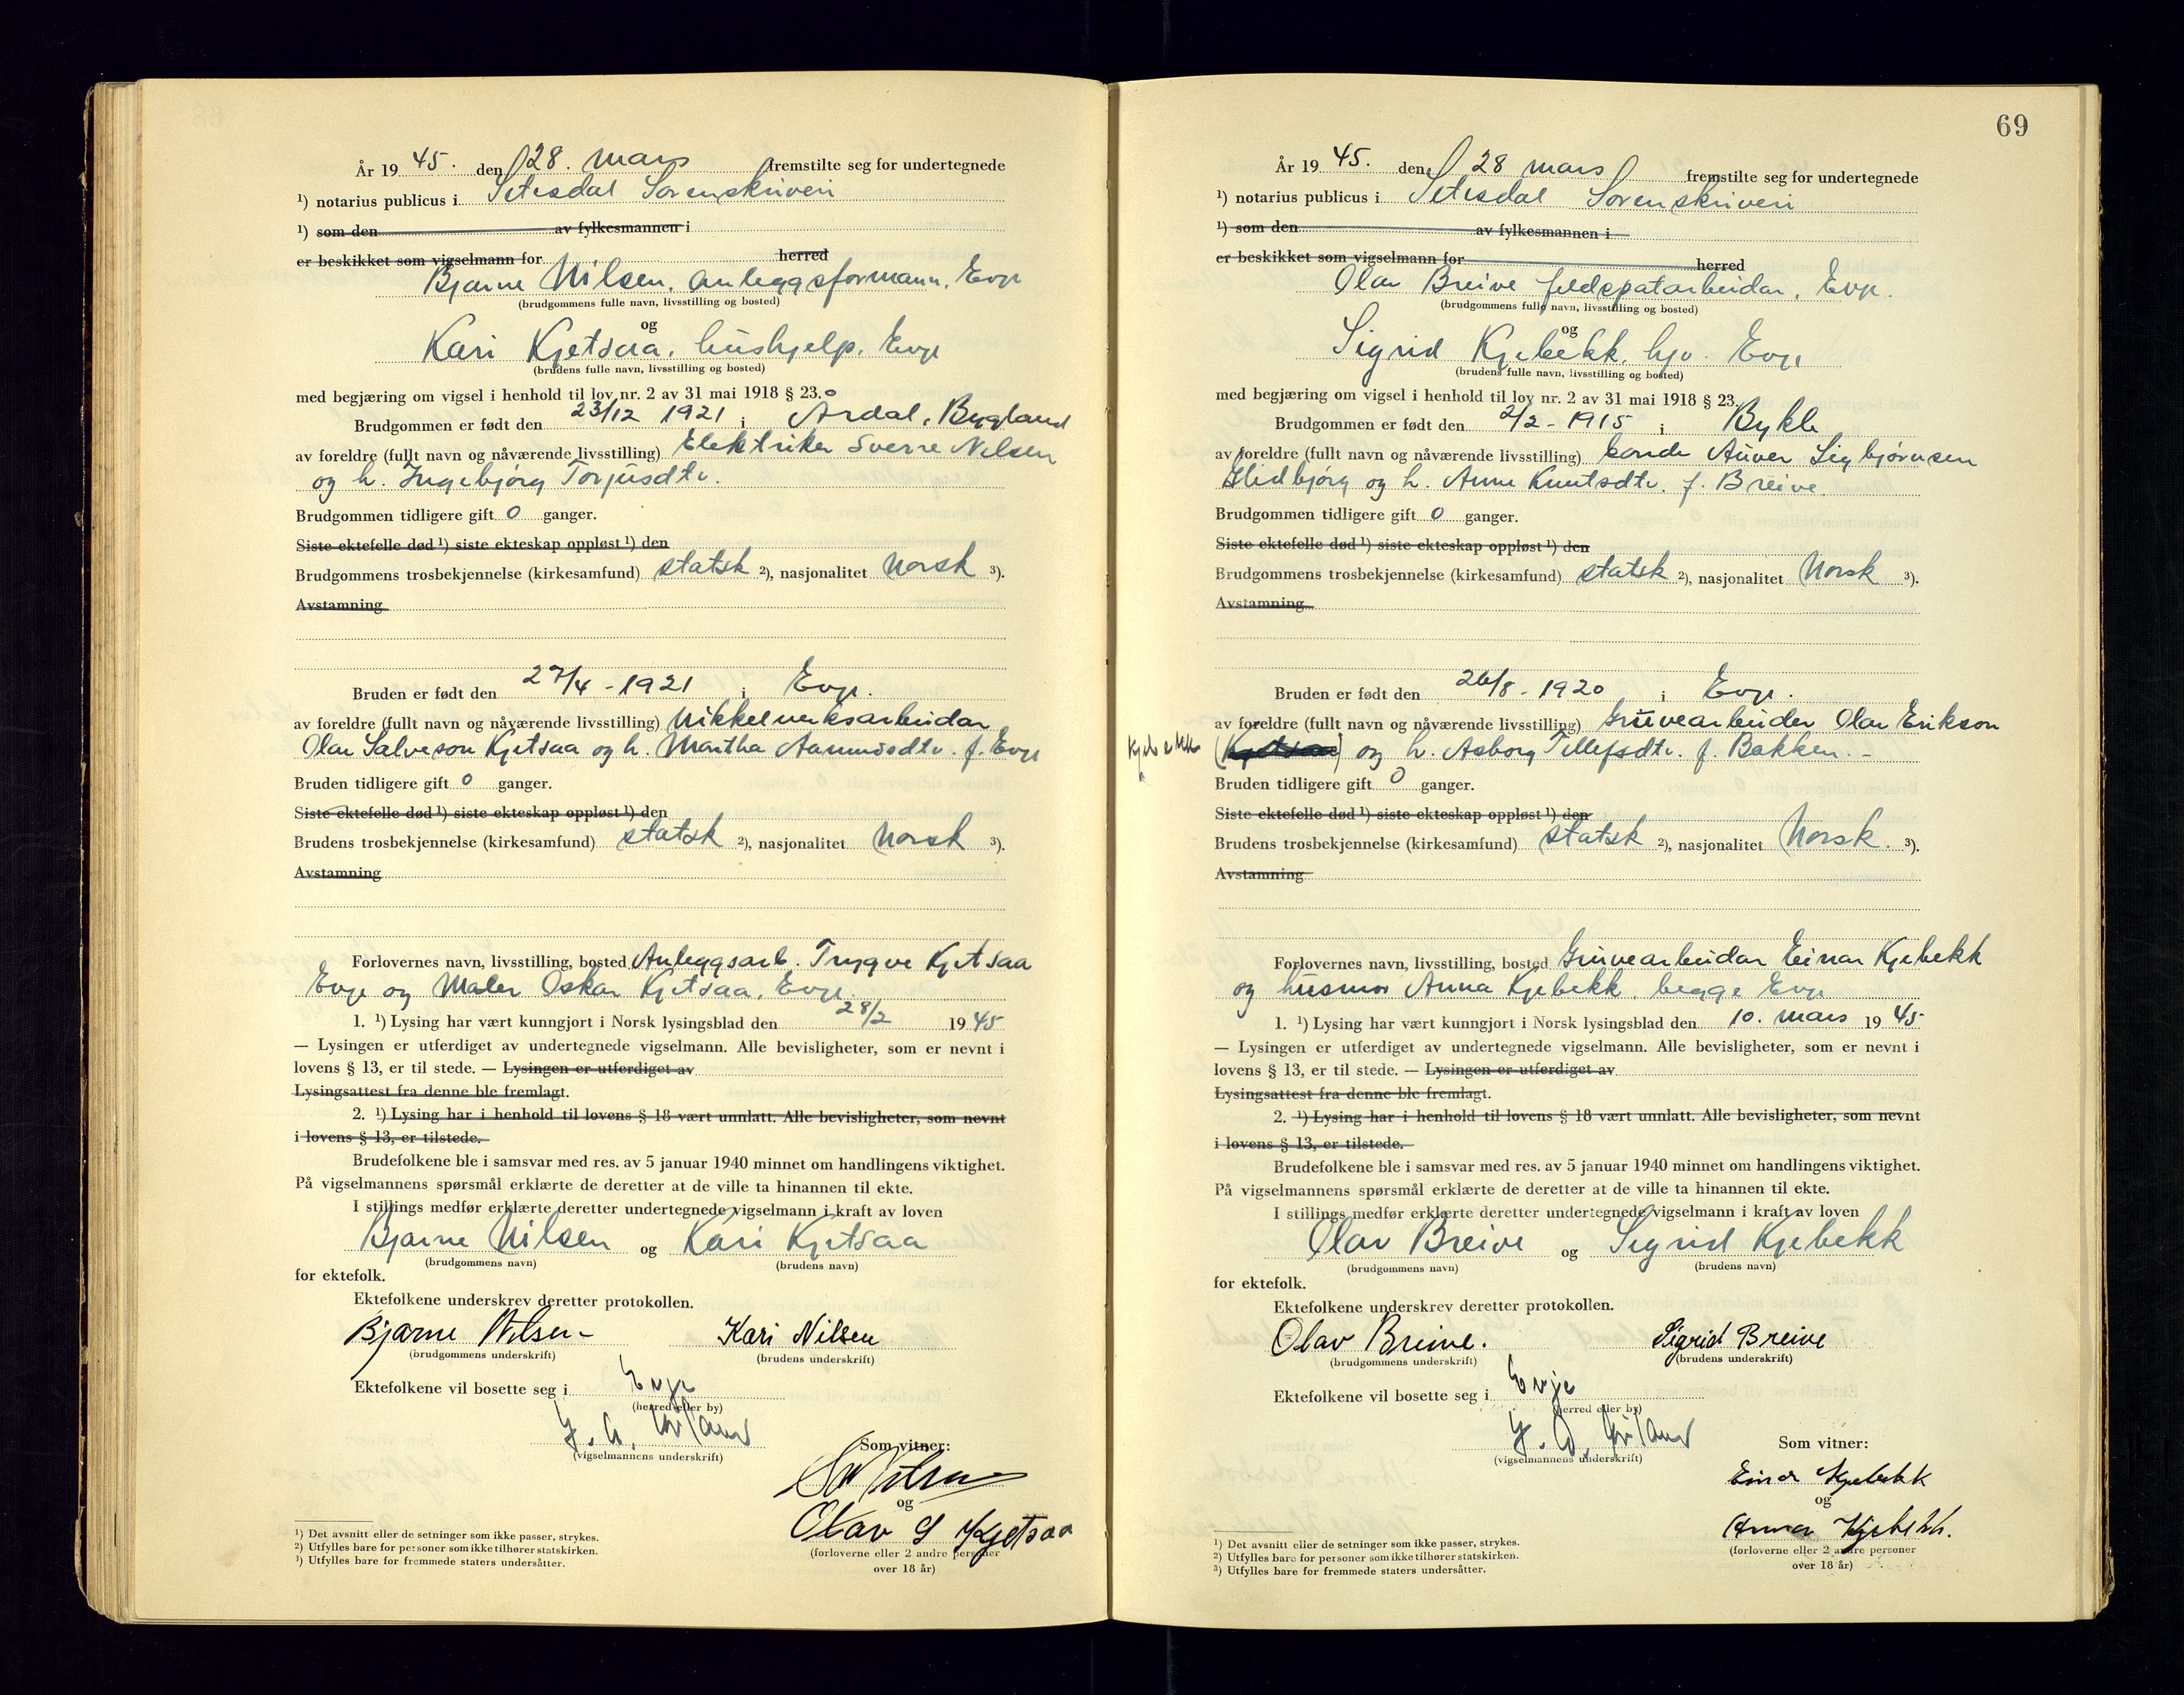 År 19 45. den 28. mars fremstilte seg for undertegnede
¹) notarius publicus i Setesdal Sorenskriveri
¹) som den av fylkesmannen i
er beskikket som vigselmann for herred
Bjarne Nilsen, anleggsformann, Evje
(brudgommens fulle navn, livsstilling og bosted)
og
Kari Kjetsaa, hushjelp, Evje
(brudens fulle navn, livsstilling og bosted)
med begjæring om vigsel i henhold til lov nr. 2 av 31 mai 1918 § 23.
Brudgommen er født den 23/12 1921 i Årdal, Bygland
av foreldre (fullt navn og nåværende livsstilling) Elektriker Sverre Nilsen
og h. Ingebjørg Torjusdtr.
Brudgommen tidligere gift 0 ganger.
Siste ektefelle død ¹) siste ekteskap oppløst ¹) den
Brudgommens trosbekjennelse (kirkesamfund) statsk ²), nasjonalitet Norsk ³).
Avstamning
Bruden er født den 27/4 - 1921 i Evje.
av foreldre (fullt navn og nåværende livsstilling) Nikkelverksarbeidar
Olav Salveson Kjetsaa og h. Martha Aamundsdtr. f. Evje
Bruden tidligere gift 0 ganger.
Siste ektefelle død ¹) siste ekteskap oppløst ¹) den
Brudens trosbekjennelse (kirkesamfund) statsk ²), nasjonalitet Norsk ³).
Avstamning
Forlovernes navn, livsstilling, bosted Anleggsarb. Trygve Kjetsaa
Evje og Maler Oskar Kjetsaa, Evje
1. ¹) Lysing har vært kunngjort i Norsk lysingsblad den 28/2 19 45
— Lysingen er utferdiget av undertegnede vigselmann. Alle bevisligheter, som er nevnt i
lovens § 13, er til stede. — Lysingen er utferdiget av
Lysingsattest fra denne ble fremlagt.
2. ¹) Lysing har i henhold til lovens § 18 vært unnlatt. Alle bevisligheter, som nevnt
i lovens § 13, er tilstede.
Brudefolkene ble i samsvar med res. av 5 januar 1940 minnet om handlingens viktighet.
På vigselmannens spørsmål erklærte de deretter at de ville ta hinannen til ekte.
I stillings medfør erklærte deretter undertegnede vigselmann i kraft av loven
Bjarne Nilsen og Kari Kjetsaa
(brudgommens navn) (brudens navn)
for ektefolk.
Ektefolkene underskrev deretter protokollen.
Bjarne Nilsen Kari Nilsen
(brudgommens underskrift) (brudens underskrift)
Ektefolkene vil bosette seg i Evje
(herred eller by)
(vigselmannens underskrift)
Som vitner:
Nilsen
og
Olav S Kjetsaa
(forloverne eller 2 andre personer
over 18 år)
¹) Det avsnitt eller de setninger som ikke passer, strykes.
²) Utfylles bare for personer som ikke tilhører statskirken.
³) Utfylles bare for fremmede staters undersåtter.
69
År 19 45. den 28 mars fremstilte seg for undertegnede
¹) notarius publicus i Setesdal Sorenskriveri
¹) som den av fylkesmannen i
er beskikket som vigselmann for herred
Olav Breive feldspatarbeidar, Evje.
(brudgommens fulle navn, livsstilling og bosted)
og
Sigrid Kjebekk, hjv. Evje
(brudens fulle navn, livsstilling og bosted)
med begjæring om vigsel i henhold til lov nr. 2 av 31 mai 1918 § 23.
Brudgommen er født den 2/2 - 1915 i Bykle
av foreldre (fullt navn og nåværende livsstilling) bonde Auver Sigbjørnsen
Hidbjørg og h. Anne Knutsdtr. f. Breive
Brudgommen tidligere gift 0 ganger.
Siste ektefelle død ¹) siste ekteskap oppløst ¹) den
Brudgommens trosbekjennelse (kirkesamfund) statsk ²), nasjonalitet Norsk ³).
Avstamning
Bruden er født den 26/8 - 1920 i Evje.
av foreldre (fullt navn og nåværende livsstilling) Gruvearbeider Olav Erikson
Kjebekk (Kjetsaa) og h. Asborg Tellefsdtr. f. Bakken. -
Bruden tidligere gift 0 ganger.
Siste ektefelle død ¹) siste ekteskap oppløst ¹) den
Brudens trosbekjennelse (kirkesamfund) statsk ²), nasjonalitet Norsk. ³).
Avstamning
Forlovernes navn, livsstilling, bosted Gruvearbeidar Einar Kjebekk
og husmor Anna Kjebekk, begge Evje
1. ¹) Lysing har vært kunngjort i Norsk lysingsblad den 10. mars 19 45
— Lysingen er utferdiget av undertegnede vigselmann. Alle bevisligheter, som er nevnt i
lovens § 13, er til stede. — Lysingen er utferdiget av
Lysingsattest fra denne ble fremlagt.
2. ¹) Lysing har i henhold til lovens § 18 vært unnlatt. Alle bevisligheter, som nevnt
i lovens § 13, er tilstede.
Brudefolkene ble i samsvar med res. av 5 januar 1940 minnet om handlingens viktighet.
På vigselmannens spørsmål erklærte de deretter at de ville ta hinannen til ekte.
I stillings medfør erklærte deretter undertegnede vigselmann i kraft av loven
Olav Breive og Sigrid Kjebekk
(brudgommens navn) (brudens navn)
for ektefolk.
Ektefolkene underskrev deretter protokollen.
Olav Breive. Sigrid Breive
(brudgommens underskrift) (brudens underskrift)
Ektefolkene vil bosette seg i Evje
(herred eller by)
(vigselmannens underskrift)
Som vitner:
Einar Kjebekk
og
Anna Kjebekk.
(forloverne eller 2 andre personer
over 18 år)
¹) Det avsnitt eller de setninger som ikke passer, strykes.
²) Utfylles bare for personer som ikke tilhører statskirken.
³) Utfylles bare for fremmede staters undersåtter.